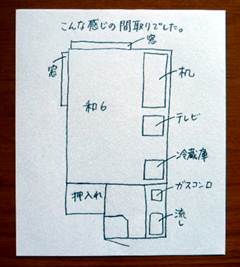 こんな感じの間取りでした。
窓
窓
机
和6
テレビ
冷蔵庫
ガスコンロ
押入れ
流し